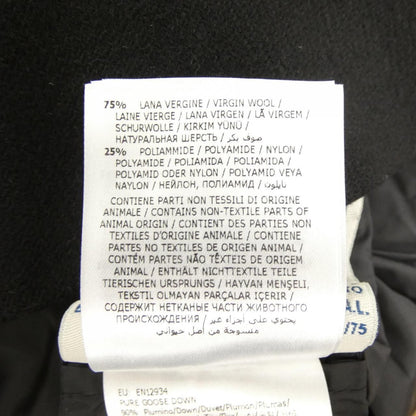 75% LANA VERGINE / VIRGIN WOOL /
LAINE VIERGE / LANA VIRGEN / LÃ VIRGEM /
SCHURWOLLE / KIRKIM YÜNÜ /
НАТУРАЛЬНАЯ ШЕРСТЬ / صوف بكر
25% POLIAMMIDE / POLYAMIDE / NYLON /
POLYAMIDE / POLIAMIDA / POLIAMIDA /
POLYAMID ODER NYLON / POLYAMID VEYA
NAYLON / НЕЙЛОН, ПОЛИАМИД / نايلون
CONTIENE PARTI NON TESSILI DI ORIGINE
ANIMALE / CONTAINS NON-TEXTILE PARTS OF
ANIMAL ORIGIN / CONTIENT DES PARTIES NON
TEXTILES D'ORIGINE ANIMALE / CONTIENE
PARTES NO TEXTILES DE ORIGEN ANIMAL /
CONTÉM PARTES NÃO TÊXTEIS DE ORIGEM
ANIMAL / ENTHÄLT NICHTTEXTILE TEILE
TIERISCHEN URSPRUNGS / HAYVAN MENŞELİ,
TEKSTİL OLMAYAN PARÇALAR İÇERİR /
СОДЕРЖИТ НЕТКАНЫЕ ЧАСТИ ЖИВОТНОГО
ПРОИСХОЖДЕНИЯ / يحتوي على أجزاء غير
منسوجة من أصل حيواني
A.L.
/75
EU: EN12934
PURE GOOSE DOWN
90% Piumino/Down/Duvet/Plumon/Plumas/